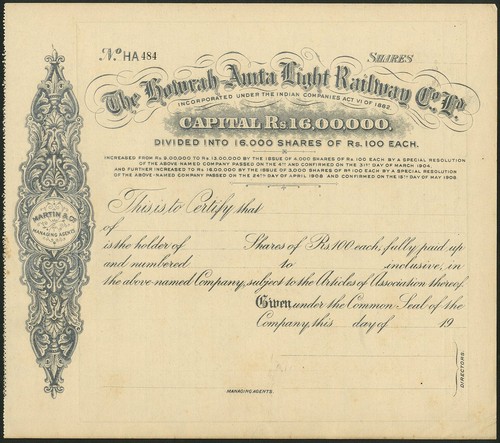 No HA 484
SHARES
The Howrah Amta Light Railway Co. Ld.
INCORPORATED UNDER THE INDIAN COMPANIES ACT VI OF 1882.
CAPITAL Rs 16,00,000.
DIVIDED INTO 16,000 SHARES OF Rs. 100 EACH.
INCREASED FROM Rs 9,00,000 TO Rs 13,00,000 BY THE ISSUE OF 4,000 SHARES OF Rs 100 EACH BY A SPECIAL RESOLUTION
OF THE ABOVE NAMED COMPANY PASSED ON THE 4TH AND CONFIRMED ON THE 31ST DAY OF MARCH 1904.
AND FURTHER INCREASED TO Rs 16,00,000 BY THE ISSUE OF 3,000 SHARES OF Rs 100 EACH BY A SPECIAL RESOLUTION
OF THE ABOVE-NAMED COMPANY PASSED ON THE 24TH DAY OF APRIL 1908 AND CONFIRMED ON THE DAY OF MAY 1908.
MARTIN & Co
MANAGING AGENTS
This is to Certify that
of
is the holder of Shares of Rs 100 each, fully paid up
and numbered to inclusive, in
the above-named Company, subject to the Articles of Association thereof.
Given under the Common Seal of the
Company, this day of 19
DIRECTORS.
MANAGING AGENTS.